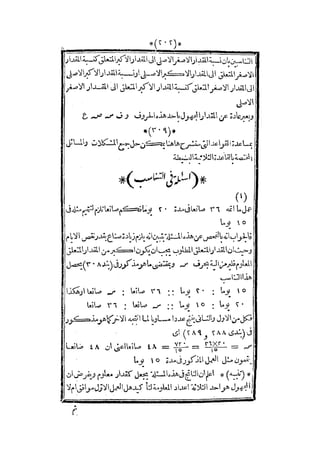 *(٢٠٢)*
التناسبين بان نسبة المقدار الاصغر الاصلى الى المقدار الاكبر المتعلق كنسبة المقدار
الاصغر المتعلق الى المقدار الاكبر الاصلى اونسبة المقدار الاكبر الاصلى
الى المقدار الاصغر المتعلق كنسبة المقدار الاكبر المتعلق الى المقدار الاصغر
الاصلى
ويعبر عادة عن المقدار المجهول باحد هذه الحروف ف س ص ع
*(٣٠٩)*
بمساعدة القواعد التى ستشرح هاهنا يمكن حل جميع المشكلات والمسائل
المختصة بالقاعدة الثلاثية البسيطة
*(اسئلة فى التناسب)*
(١)
عمل ما اتمه ٣٦ صانعا فى مدة ٢٠ يوما فكم صانعا تلزم لتتميمه فى
١٥ يوما
فالجواب انه بالتفحص عن هذه المسئلة يتبين انه يلزم زيادة صناع بقدر نقص الايام
وحيث ان المقدار المتعلق المطلوب يجب ان يكون اكبر من المقدار المتعلق
المعلوم فلنرمز اليه بحرف س وبمقتضى ما هو مذكور فى (بند ٣٠٨) يحصل
هذا التناسب
١٥ يوما : ٢٠ يوما :: ٣٦ صانعا : س صانعا او هكذا
٢٠ يوما : ١٥ يوما :: س صانعا : ٣٦ صانعا
فكل من الاول والثانى ينتج عددا مساويا لما انتجه الآخر كما هو مذكور
فى (بندى ٢٨٨ و ٢٨٩) اى
س = ٣٦×٢٠/١٥ = ٧٢٠/١٥ = ٤٨ صانعا اعنى ان ٤٨ صانعا
يتمون مثل العمل المذكور فى مدة ١٥ يوما
*(تنبيه)* اعلم ان الناتج فى هذه المسئلة يجعل كمقدار معلوم ويفرض ان
المجهول هو احد الثلاثة اعداد المعلومة لتأكيد هل العمل الاول موافق ام لا
ثم